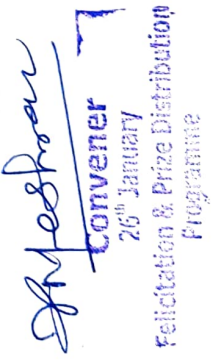 Convener
26th January
Felicitation & Prize Distribution
Programme